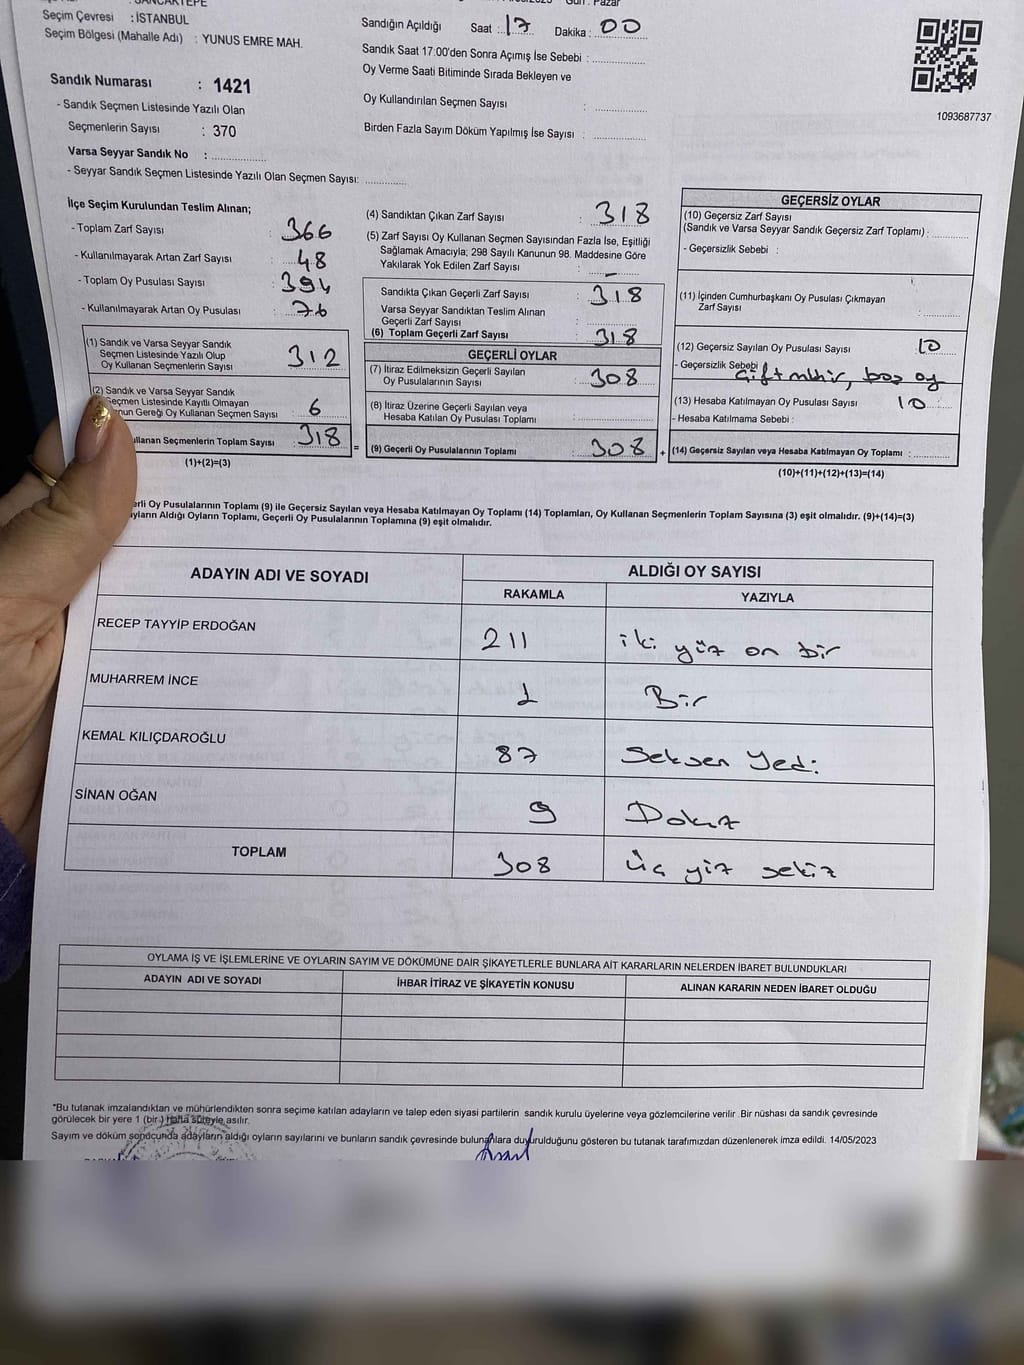 Seçim Çevresi : İSTANBUL
Seçim Bölgesi (Mahalle Adı) : YUNUS EMRE MAH.
Sandık Numarası : 1421
- Sandık Seçmen Listesinde Yazılı Olan
Seçmenlerin Sayısı : 370
Varsa Seyyar Sandık No :
- Seyyar Sandık Seçmen Listesinde Yazılı Olan Seçmen Sayısı:
Sandığın Açıldığı Saat : 17 Dakika : 00
Sandık Saat 17:00'den Sonra Açımış İse Sebebi :
Oy Verme Saati Bitiminde Sırada Bekleyen ve
Oy Kullandırılan Seçmen Sayısı :
Birden Fazla Sayım Döküm Yapılmış İse Sayısı :
1093687737
İlçe Seçim Kurulundan Teslim Alınan;
- Toplam Zarf Sayısı : 366
- Kullanılmayarak Artan Zarf Sayısı : 48
- Toplam Oy Pusulası Sayısı : 394
- Kullanılmayarak Artan Oy Pusulası : 76
(1) Sandık ve Varsa Seyyar Sandık
Seçmen Listesinde Yazılı Olup
Oy Kullanan Seçmenlerin Sayısı 312
(2) Sandık ve Varsa Seyyar Sandık
Seçmen Listesinde Kayıtlı Olmayan
nun Gereği Oy Kullanan Seçmen Sayısı 6
ullanan Seçmenlerin Toplam Sayısı 318 =
(1)+(2)=(3)
(4) Sandıktan Çıkan Zarf Sayısı : 318
(5) Zarf Sayısı Oy Kullanan Seçmen Sayısından Fazla İse, Eşitliği
Sağlamak Amacıyla; 298 Sayılı Kanunun 98. Maddesine Göre
Yakılarak Yok Edilen Zarf Sayısı : -
Sandıkta Çıkan Geçerli Zarf Sayısı : 318
Varsa Seyyar Sandıktan Teslim Alınan
Geçerli Zarf Sayısı :
(6) Toplam Geçerli Zarf Sayısı : 318
GEÇERLİ OYLAR
(7) İtiraz Edilmeksizin Geçerli Sayılan
Oy Pusulalarının Sayısı : 308
(8) İtiraz Üzerine Geçerli Sayılan veya
Hesaba Katılan Oy Pusulası Toplamı :
(9) Geçerli Oy Pusulalarının Toplamı : 308 +
GEÇERSİZ OYLAR
(10) Geçersiz Zarf Sayısı
(Sandık ve Varsa Seyyar Sandık Geçersiz Zarf Toplamı) :
- Geçersizlik Sebebi :
(11) İçinden Cumhurbaşkanı Oy Pusulası Çıkmayan
Zarf Sayısı :
(12) Geçersiz Sayılan Oy Pusulası Sayısı 10
- Geçersizlik Sebebi : çift mühür, boş oy
(13) Hesaba Katılmayan Oy Pusulası Sayısı 10
- Hesaba Katılmama Sebebi :
(14) Geçersiz Sayılan veya Hesaba Katılmayan Oy Toplamı :
(10)+(11)+(12)+(13)=(14)
erli Oy Pusulalarının Toplamı (9) ile Geçersiz Sayılan veya Hesaba Katılmayan Oy Toplamı (14) Toplamları, Oy Kullanan Seçmenlerin Toplam Sayısına (3) eşit olmalıdır. (9)+(14)=(3)
yların Aldığı Oyların Toplamı, Geçerli Oy Pusulalarının Toplamına (9) eşit olmalıdır.
ADAYIN ADI VE SOYADI ALDIĞI OY SAYISI
RAKAMLA YAZIYLA
RECEP TAYYİP ERDOĞAN 211 iki yüz on bir
MUHARREM İNCE 1 Bir
KEMAL KILIÇDAROĞLU 87 Seksen Yedi
SİNAN OĞAN 9 Dokuz
TOPLAM 308 üç yüz sekiz
OYLAMA İŞ VE İŞLEMLERİNE VE OYLARIN SAYIM VE DÖKÜMÜNE DAİR ŞİKAYETLERLE BUNLARA AİT KARARLARIN NELERDEN İBARET BULUNDUKLARI
ADAYIN ADI VE SOYADI İHBAR İTİRAZ VE ŞİKAYETİN KONUSU ALINAN KARARIN NEDEN İBARET OLDUĞU
*Bu tutanak imzalandıktan ve mühürlendikten sonra seçime katılan adayların ve talep eden siyasi partilerin sandık kurulu üyelerine veya gözlemcilerine verilir .Bir nüshası da sandık çevresinde
görülecek bir yere 1 (bir ) Hafta süreyle asılır.
Sayım ve döküm sonucunda adayların aldığı oyların sayılarını ve bunların sandık çevresinde bulunanlara duyurulduğunu gösteren bu tutanak tarafımızdan düzenlenerek imza edildi. 14/05/2023